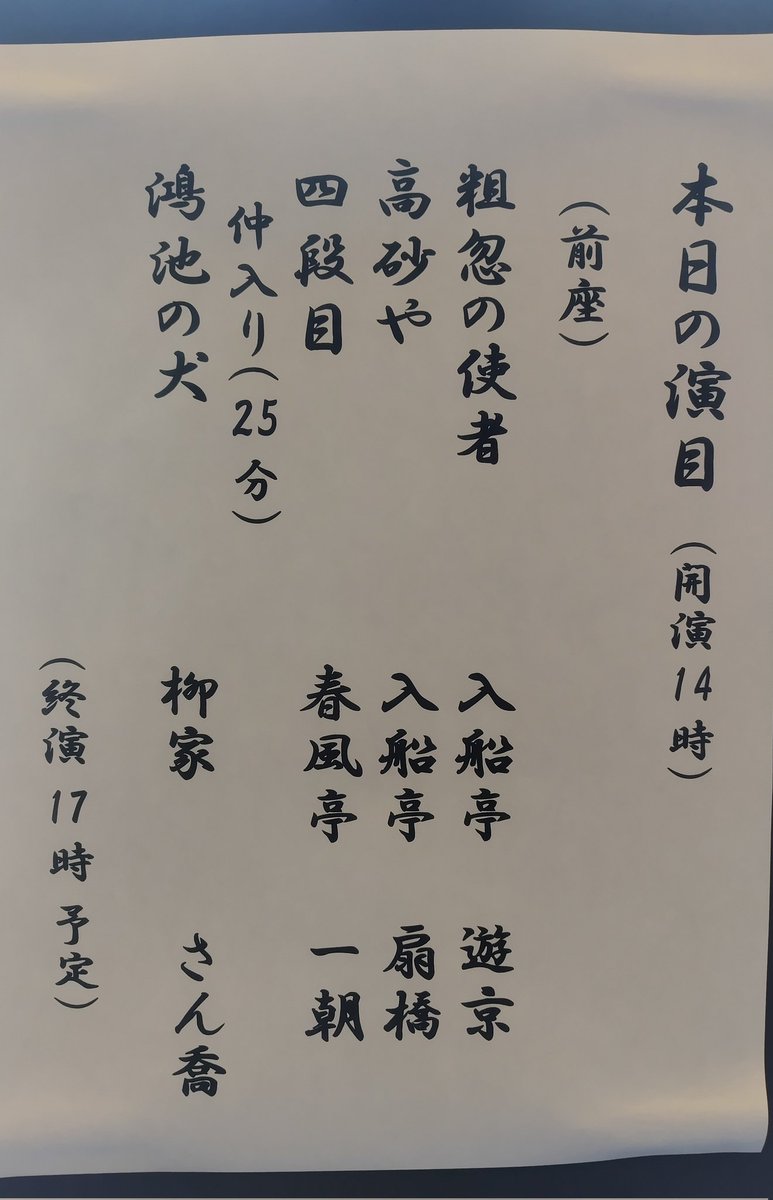 本日の演目（開演14時）
（前座）
粗忽の使者 入船亭 遊京
高砂や 入船亭 扇橋
四段目 春風亭 一朝
仲入り（25分）
鴻池の犬 柳家 さん喬
（終演17時予定）